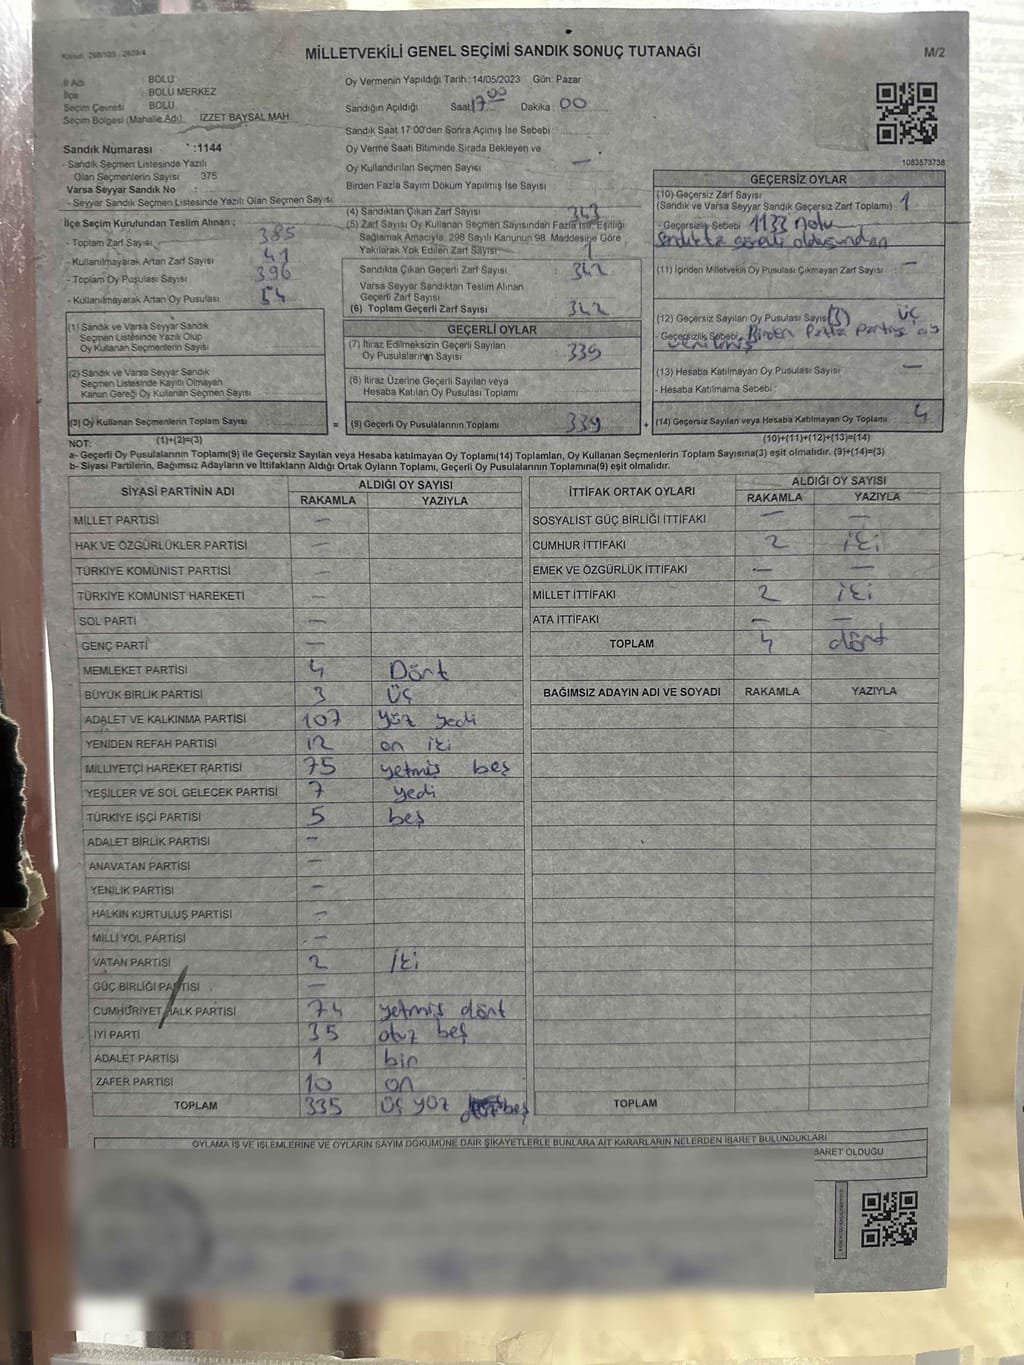 MİLLETVEKİLİ GENEL SEÇİMİ SANDIK SONUÇ TUTANAĞI
M/2
İl Adı : BOLU
İlçe : BOLU MERKEZ
Seçim Çevresi : BOLU
Seçim Bölgesi (Mahalle Adı) : İZZET BAYSAL MAH.
Sandık Numarası : 1144
- Sandık Seçmen Listesinde Yazılı
Olan Seçmenlerin Sayısı : 375
Varsa Seyyar Sandık No :
- Seyyar Sandık Seçmen Listesinde Yazılı Olan Seçmen Sayısı
İlçe Seçim Kurulundan Teslim Alınan :
- Toplam Zarf Sayısı 385
- Kullanılmayarak Artan Zarf Sayısı 41
- Toplam Oy Pusulası Sayısı 396
- Kullanılmayarak Artan Oy Pusulası 54
(1) Sandık ve Varsa Seyyar Sandık
Seçmen Listesinde Yazılı Olup
Oy Kullanan Seçmenlerin Sayısı
(2) Sandık ve Varsa Seyyar Sandık
Seçmen Listesinde Kayıtlı Olmayan
Kanun Gereği Oy Kullanan Seçmen Sayısı
(3) Oy Kullanan Seçmenlerin Toplam Sayısı
(1)+(2)=(3)
Oy Vermenin Yapıldığı Tarih :14/05/2023 Gün: Pazar
Sandığın Açıldığı Saat 17 00 Dakika : 00
Sandık Saat 17:00'den Sonra Açımış İse Sebebi :
Oy Verme Saati Bitiminde Sırada Bekleyen ve
Oy Kullandırılan Seçmen Sayısı —
Birden Fazla Sayım Döküm Yapılmış İse Sayısı
(4) Sandıktan Çıkan Zarf Sayısı 343
(5) Zarf Sayısı Oy Kullanan Seçmen Sayısından Fazla İse, Eşitliği
Sağlamak Amacıyla, 298 Sayılı Kanunun 98. Maddesine Göre
Yakılarak Yok Edilen Zarf Sayısı 1
Sandıkta Çıkan Geçerli Zarf Sayısı 342
Varsa Seyyar Sandıktan Teslim Alınan
Geçerli Zarf Sayısı
(6) Toplam Geçerli Zarf Sayısı 342
GEÇERLİ OYLAR
(7) İtiraz Edilmeksizin Geçerli Sayılan
Oy Pusulalarının Sayısı 339
(8) İtiraz Üzerine Geçerli Sayılan veya
Hesaba Katılan Oy Pusulası Toplamı
= (9) Geçerli Oy Pusulalarının Toplamı 339 +
1083573738
GEÇERSİZ OYLAR
(10) Geçersiz Zarf Sayısı
(Sandık ve Varsa Seyyar Sandık Geçersiz Zarf Toplamı) : 1
- Geçersizlik Sebebi 1133 nolu
sandıkta görevli olduğundan
(11) İçinden Milletvekili Oy Pusulası Çıkmayan Zarf Sayısı : —
(12) Geçersiz Sayılan Oy Pusulası Sayısı (3) ÜÇ
- Geçersizlik Sebebi : Birden fazla partiye oy
verilmiş
(13) Hesaba Katılmayan Oy Pusulası Sayısı —
- Hesaba Katılmama Sebebi :
(14) Geçersiz Sayılan veya Hesaba Katılmayan Oy Toplamı 4
(10)+(11)+(12)+(13)=(14)
NOT:
a- Geçerli Oy Pusulalarının Toplamı(9) ile Geçersiz Sayılan veya Hesaba katılmayan Oy Toplamı(14) Toplamları, Oy Kullanan Seçmenlerin Toplam Sayısına(3) eşit olmalıdır. (9)+(14)=(3)
b- Siyasi Partilerin, Bağımsız Adayların ve İttifakların Aldığı Ortak Oyların Toplamı, Geçerli Oy Pusulalarının Toplamına(9) eşit olmalıdır.
SİYASİ PARTİNİN ADI ALDIĞI OY SAYISI
RAKAMLA YAZIYLA
MİLLET PARTİSİ —
HAK VE ÖZGÜRLÜKLER PARTİSİ —
TÜRKİYE KOMÜNİST PARTİSİ —
TÜRKİYE KOMÜNİST HAREKETİ —
SOL PARTİ —
GENÇ PARTİ —
MEMLEKET PARTİSİ 4 Dört
BÜYÜK BİRLİK PARTİSİ 3 Üç
ADALET VE KALKINMA PARTİSİ 107 yüz yedi
YENİDEN REFAH PARTİSİ 12 on iki
MİLLİYETÇİ HAREKET PARTİSİ 75 yetmiş beş
YEŞİLLER VE SOL GELECEK PARTİSİ 7 yedi
TÜRKİYE İŞÇİ PARTİSİ 5 beş
ADALET BİRLİK PARTİSİ —
ANAVATAN PARTİSİ —
YENİLİK PARTİSİ —
HALKIN KURTULUŞ PARTİSİ —
MİLLİ YOL PARTİSİ —
VATAN PARTİSİ 2 iki
GÜÇ BİRLİĞİ PARTİSİ —
CUMHURİYET HALK PARTİSİ 74 yetmiş dört
İYİ PARTİ 35 otuz beş
ADALET PARTİSİ 1 bir
ZAFER PARTİSİ 10 on
TOPLAM 335 üç yüz beş
İTTİFAK ORTAK OYLARI ALDIĞI OY SAYISI
RAKAMLA YAZIYLA
SOSYALİST GÜÇ BİRLİĞİ İTTİFAKI — —
CUMHUR İTTİFAKI 2 iki
EMEK VE ÖZGÜRLÜK İTTİFAKI — —
MİLLET İTTİFAKI 2 iki
ATA İTTİFAKI — —
TOPLAM 4 dört
BAĞIMSIZ ADAYIN ADI VE SOYADI RAKAMLA YAZIYLA
TOPLAM
OYLAMA İŞ VE İŞLEMLERİNE VE OYLARIN SAYIM DÖKÜMÜNE DAİR ŞİKAYETLERLE BUNLARA AİT KARARLARIN NELERDEN İBARET BULUNDUKLARI
BARET OLDUĞU